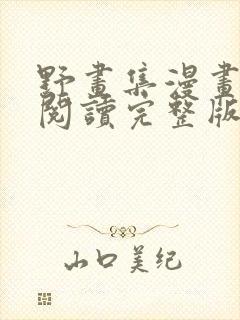 野畫集漫畫
閱讀完整版
山口美纪